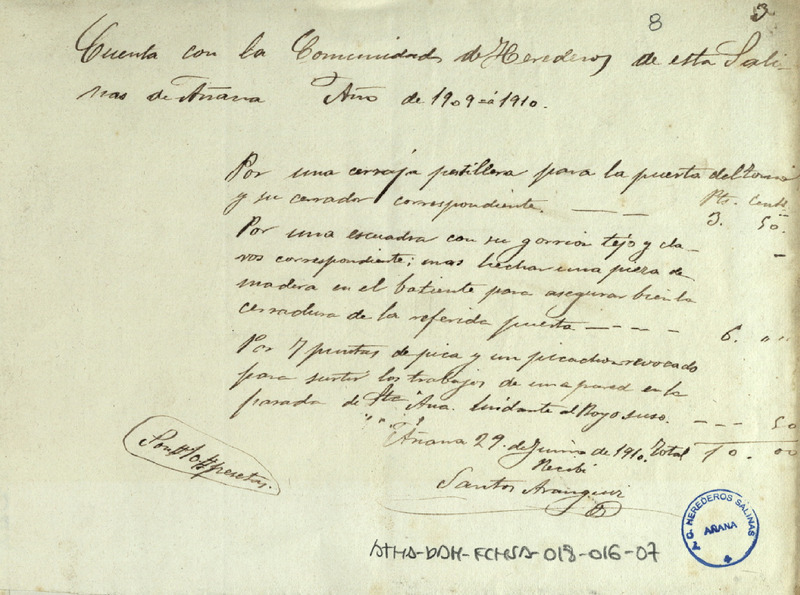 8 3
Cuenta con la Comunidad de Herederos de esta Sali-
nas de Añana Año de 1909 á 1910.
Por una cerraja pestillera para la puerta del
y su cerrador correspondiente. — — Pts. Cents.
3. 50.
Por una escuadra con su gorrion tejo y cla-
vos correspondiente; mas hechar una pieza de
madera en el batiente para asegurar bien la
cerradura de la referida puerta — — — — 6. " "
Por 7 puntas de pica y un picachon revocado
para surtir los trabajos de una pared en la
parada de Sta Ana. lindante al Royo suso. — — — 50
" " "
Añana 29 de Junio de 1910. Total 10. 00
Recibi
Son #10# pesetas.
Santos Aranguiz
A. C. HEREDEROS SALINAS
AÑANA
ATHA-DAH-FCHSA-018-016-07